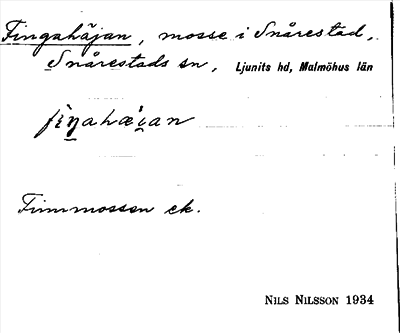 Fingahäjan, mosse i Snårestad,
Snårestads sn, Ljunits hd, Malmöhus län
fìŋahæ̀i̯an
Finnmossen ek.
NILS NILSSON 1934